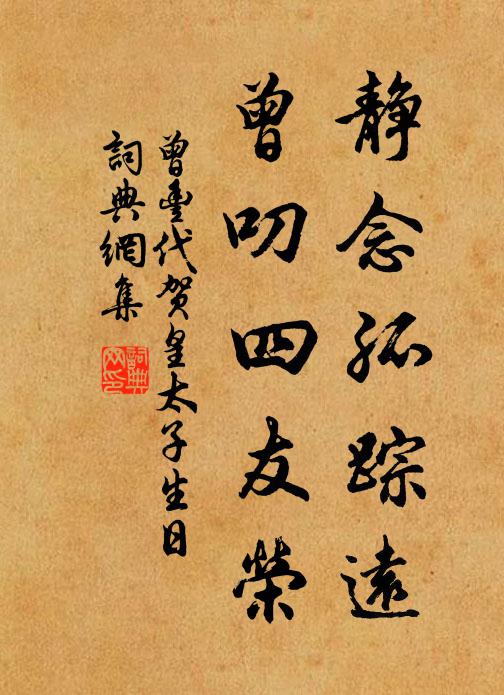 静念孤踪遠
曾叨四友榮
曾豐代贺皇太子生日
詞典網集
詞典网印